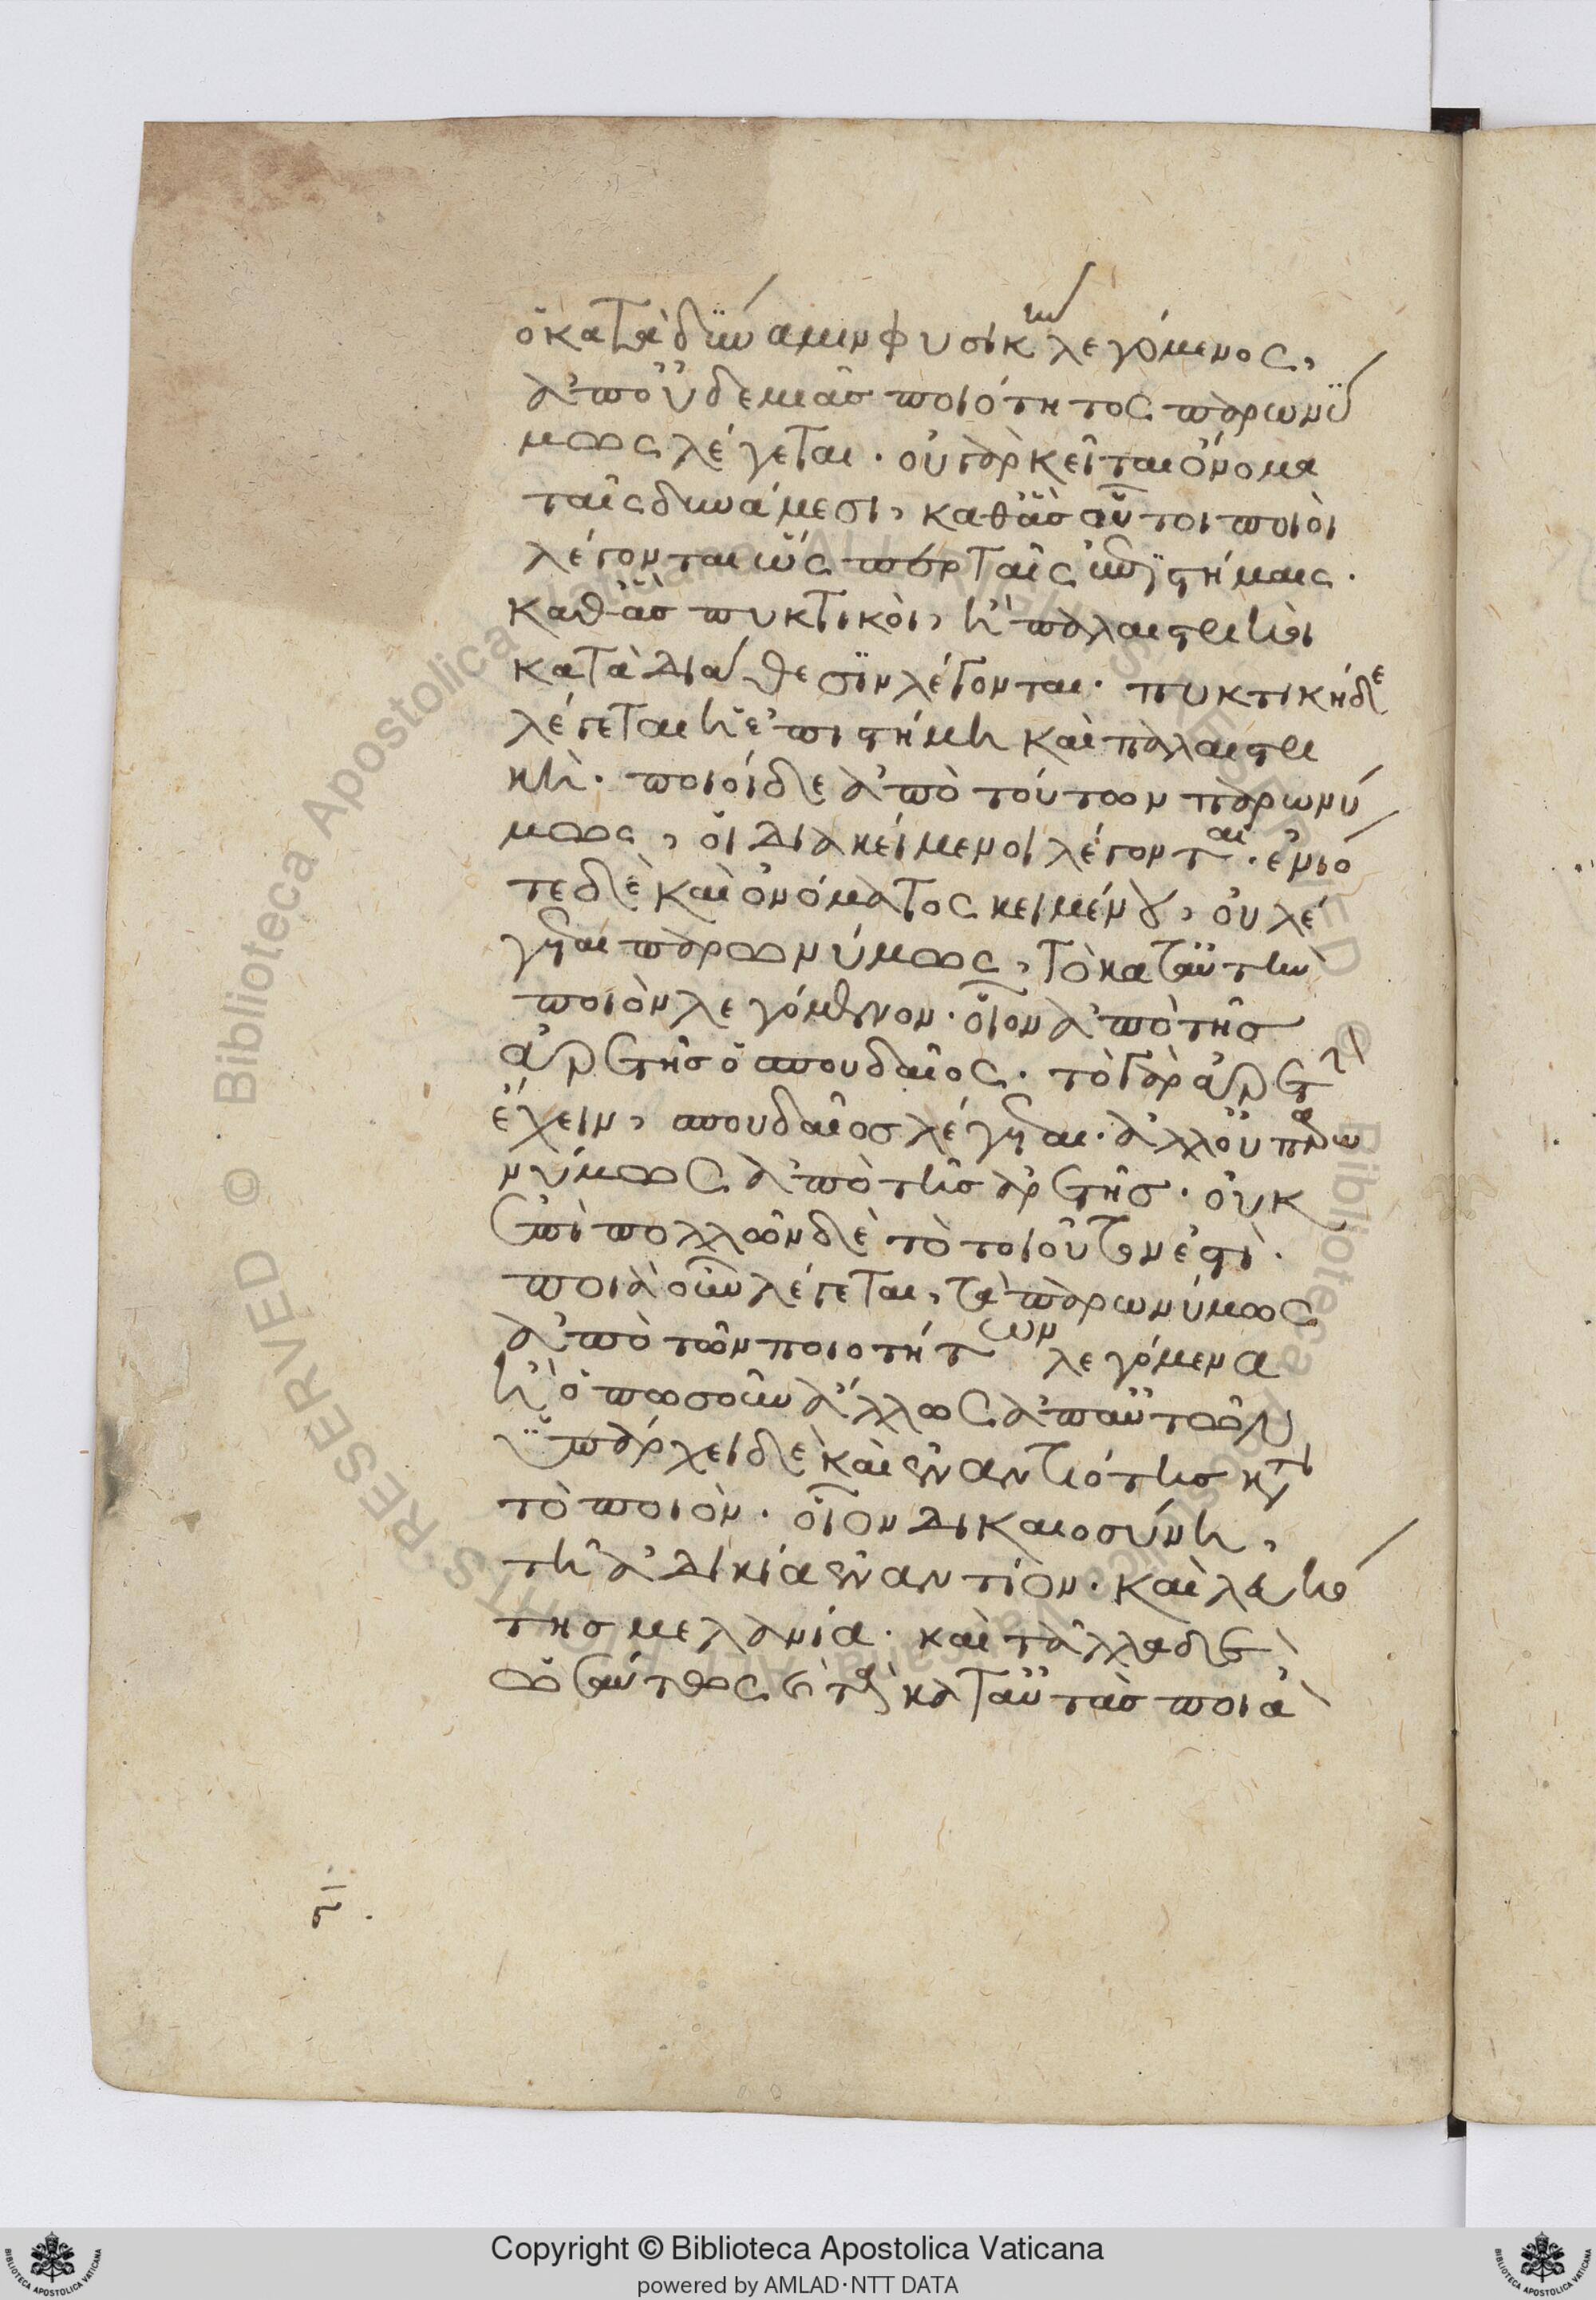 ὁ κατὰ δύναμιν φυσικὴν λεγόμενος,
ἀπ' οὐδεμιᾶς ποιότητος παρωνύ
μως λέγεται. οὐ γὰρ κεῖται ὄνομα
ταῖς δυνάμεσι, καθ' ἃς οὗτοι ποιοὶ
λέγονται ὥσπερ ταῖς ἐπιστήμαις.
καθ' ἃς πυκτικοὶ, ἢ παλαιστρικοὶ
κατὰ διάθεσιν λέγονται. πυκτικὴ δὲ
λέγεται ἡ ἐπιστήμη καὶ παλαιστρι
κὴ. ποιοὶ δὲ ἀπὸ τούτων παρωνύ
μως, οἱ διακείμενοι λέγονται. ἐνιό
τε δὲ καὶ ὀνόματος κειμένου, οὐ λέ
γεται παρωνύμως, τὸ κατ' αὐτὴν
ποιὸν λεγόμενον. οἷον ἀπὸ τῆς
ἀρετῆς ὁ σπουδαῖος. τῷ γὰρ ἀρετὴν
ἔχειν, σπουδαῖος λέγεται. ἀλλ' οὐ παρω
νύμως ἀπὸ τῆς ἀρετῆς. οὐκ
ἐπὶ πολλῶν δὲ τὸ τοιοῦτόν ἐστὶ.
ποιὰ οὖν λέγεται, τὰ παρωνύμως
ἀπὸ τῶν ποιοτήτων λεγόμενα
ἢ ὁπωσοῦν ἄλλως ἀπ' αὐτῶν
ὑπάρχει δὲ καὶ ἐναντιότης κατὰ
τὸ ποιὸν. οἷον δικαιοσύνη,
τῇ ἀδικία ἐναντίον. καὶ λευκό
της μελανία. καὶ τἆλλα δὲ
ὡσαύτως καὶ τὰ κατ' αὐτὰς ποιὰ
Copyright © Biblioteca Apostolica Vaticana
powered by AMLAD·NTT DATA